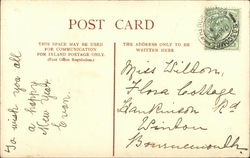 POST CARD
THIS SPACE MAY BE USED
FOR COMMUNICATION
FOR INLAND POSTAGE ONLY.
(Post Office Regulation.)
THE ADDRESS ONLY TO BE
WRITTEN HERE.
To wish you all
a happy
New Year
Miss Dibbon,
Flora Cottage
Hankinson Rd
Winton
Bournemouth.